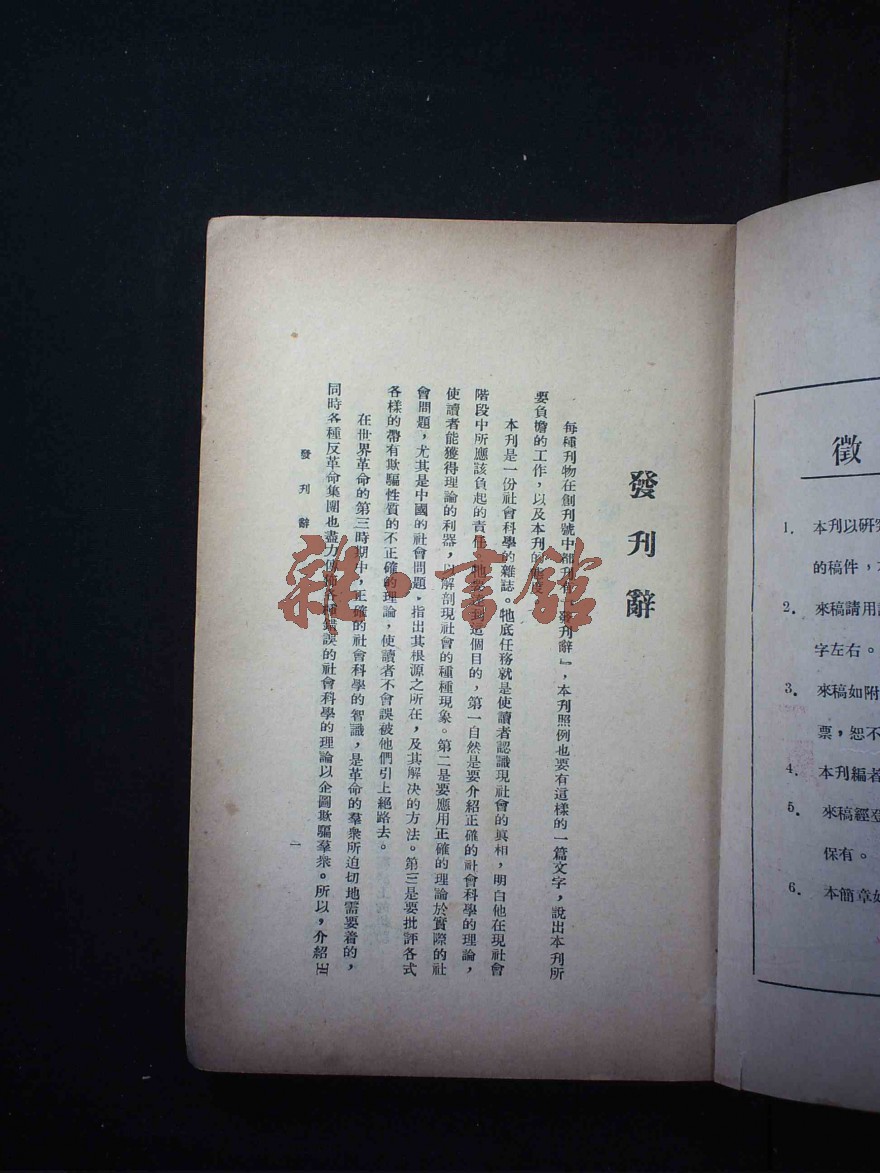 發刊辭
每種刊物在創刊號中都刊有『發刊辭』，本刊照例也要有這樣的一篇文字，說出本刊所
要負擔的工作，以及本刊的態度。
本刊是一份社會科學的雜誌。牠底任務就是使讀者認識現社會的眞相，明白他在現社會
階段中所應該負起的責任。牠要達到這個目的，第一自然是要介紹正確的社會科學的理論，
使讀者能獲得理論的利器，以解剖現社會的種種現象。第二是要應用正確的理論於實際的社
會問題，尤其是中國的社會問題，指出其根源之所在，及其解决的方法。第三是要批評各式
各樣的帶有欺騙性質的不正確的理論，使讀者不會誤被他們引上絕路去。
在世界革命的第三時期中，正確的社會科學的智識，是革命的羣衆所迫切地需要着的，
同時各種反革命集團也盡力傳佈各種錯誤的社會科學的理論以企圖欺騙羣衆。所以，介紹正
發刊辭
一
雜·書館
徵
1. 本刊以研究
的稿件，
2. 來稿請用
字左右。
3. 來稿如附
票，恕不
4. 本刊編者
5. 來稿經登
保有。
6. 本簡章如